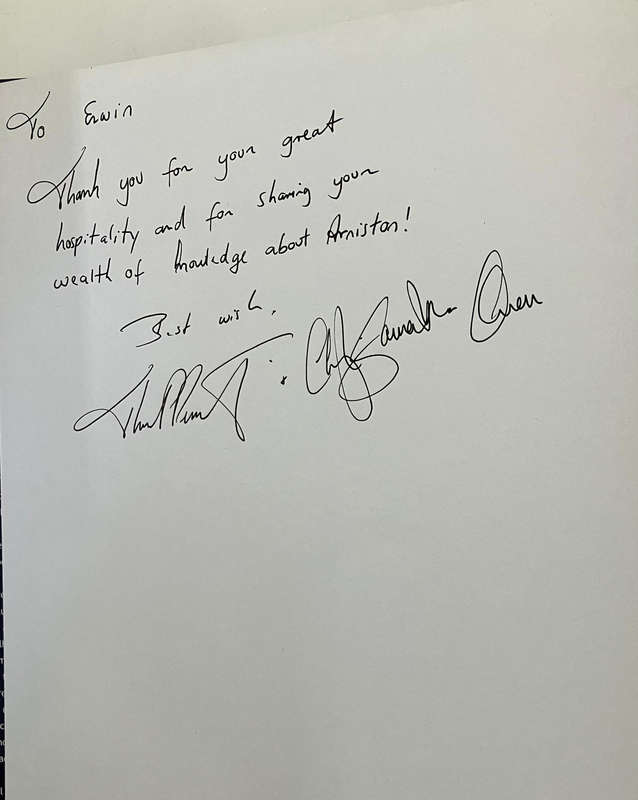 To Erwin
Thank you for your great
hospitality and for sharing your
wealth of knowledge about Arniston!
Best wish,